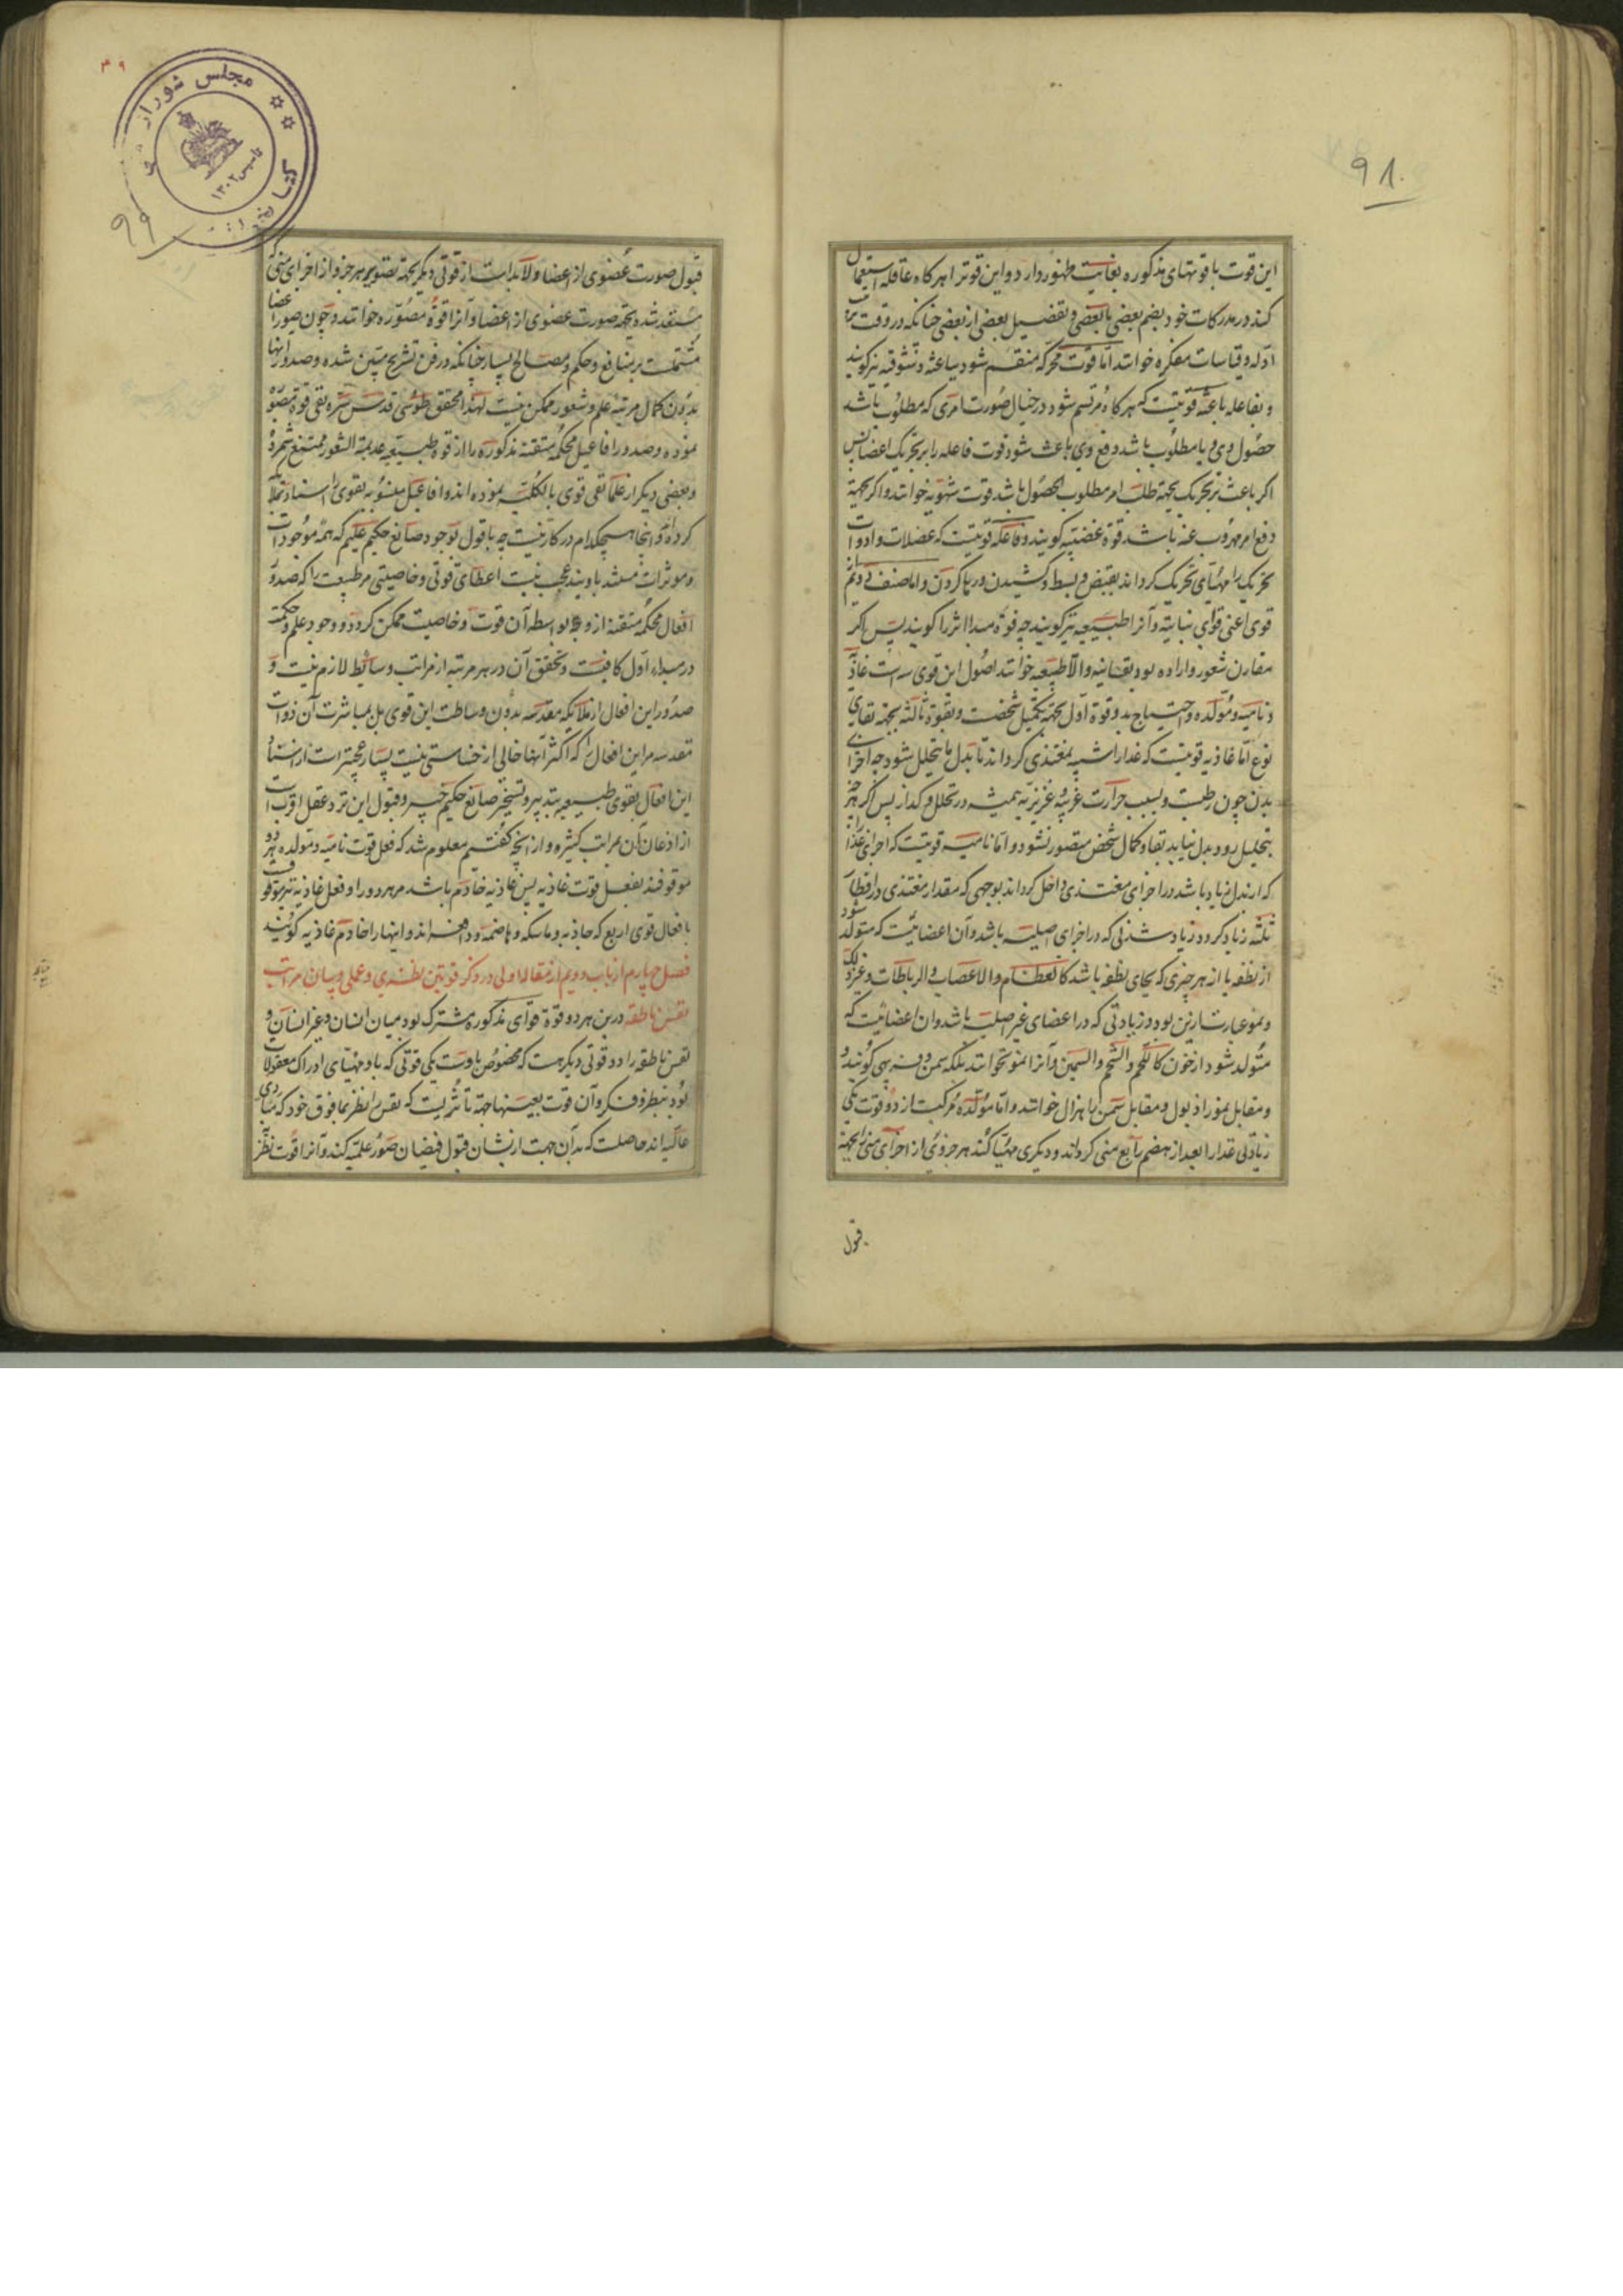 ۹۸
این قوت با قوتهای مذکوره بغایت ظهور دارد و این قوتر اهرکاه عاقله استعمال
کند در مدرکات خود بضم بعضی با بعضی و تفصیل بعضی از بعضی چنانکه در وقت
ادله و قیاسات مفکره خوانند اما قوت محرکه منقسم شود بباعثه و شوقیه نیز کویند
و بفاعله باعثه قوتیست که هرکاه مرتسم شود در خیال صورت امری که مطلوب باشد
حصول وی و یا مطلوب باشد دفع وی باعث شود قوت فاعله را بر تحریک اعضا پس
اکر باعث بر تحریک بجهة طلب امر مطلوب الحصول باشد قوت شهویه خوانند و اکر بجهة
دفع امر مهروب عنه باشد قوة غضبیه کویند و فاعله قوتیست که عضلات و ادوات
تحریک را مهیای تحریک کرداند بقبض و بسط و کشیدن و رها کردن و اما صنف دوم
قوی اعنی قوای نباتیه و آنرا طبیعیه نیز کویند چه قوة مبدا اثر را کویند پس اکر
مقارن شعور و اراده بود نفسانیه والا طبیعیه خوانند اصول این قوی سه است غاذیه
و نامیه و مولده و احتیاج بدو قوة اول بجهة تکمیل شخصست و بقوة ثالثه بجهة بقای
نوع اما غاذیه قوتیست که غذا را شبیه بمغتذی کرداند تا بدل ما یتحلل شود چه اجزای
بدن چون رطبست و بسبب حرارت غریبه و غریزیه همیشه در تحلل و کداز پس اکر هرچه
بتحلیل رود بدل نیاید بقا و کمال شخص متصور نشود و اما نامیه قوتیست که اجزای غذا را
که از بدل زیاد باشد در اجزای مغتذی داخل کرداند بوجهی که مقدار مغتذی در اقطار
ثلثه زیاد کردد و زیاد شدنی که در اجزای اصلیه باشد و آن اعضائیست که متولد شود
از نطفه یا از هر چیزی که بجای نطفه باشد کالعظام والاعصاب والرباطات و غیر ذلک
و نمو عبارت ازین بود و زیادتی که در اعضای غیر اصلیه باشد و ان اعضائیست که
متولد شود از خون کاللحم والشحم والسمین و آنرا نمو نخوانند بلکه سمن و فربهی کویند و
و مقابل نمو را ذبول و مقابل سمن را هزال خوانند و اما مولده مرکبست از دو قوت یکی
زیادتی غذا را بعد از هضم رابع منی کرداند و دیکری مهیا کند هر جزوی از اجزای منی را بجهة
قبول
۳۹
مجلس شورای
کتابخانه
تاسیس ۱۳۰۲
۹۹
قبول صورت عضوی از اعضا ولابد است از قوتی دیکر بجهة تصویر هر جزو از اجزای منی که
مستعد شده بجهة صورت عضوی از اعضا و آنرا قوة مصوره خوانند و چون صور اعضا
مشتملست بر منافع و حکم و مصالح بسیار چنانکه در فن تشریح مبین شده و صدور اینها
بدون کمال مرتبه علم و شعور ممکن نیست لهذا محقق طوسی قدس سره نفی قوة مصوره
نموده و صدور افاعیل محکمه متقنه مذکوره را از قوة طبیعیه عدیمة الشعور ممتنع شمرده
و بعضی دیکر از علما نفی قوی بالکلیه نموده اند و افاعیل منسوبه بقوی را اسناد بملائکه
کرده اند و اینجا هیچکدام در کار نیست چه با قول بوجود صانع حکیم علیم که همه موجودات
و موثرات مستند باویند عجب نیست اعطای قوتی و خاصیتی مر طبیعت را که صدور
افعال محکمه متقنه از و بواسطه آن قوت و خاصیت ممکن کردد و وجود علم و حکمت
در مبداء اول کافیست و تحقق آن در هر مرتبه از مراتب وسائط لازم نیست و
صدور این افعال از ملائکه مقدسه بدون وساطت این قوی بل بمباشرت آن ذوات
مقدسه مر این افعال را که اکثر آنها خالی از خساستی نیست بسیار عجیبتر است از استناد
این افعال بقوی طبیعیه بتدبیر و تسخیر صانع حکیم خبیر و قبول این نزد عقل اقربست
از اذعان آن بمراتب کثیره و از آنچه کفتیم معلوم شد که فعل قوت نامیه و مولده هر دو
موقوفند بفعل قوت غاذیه پس غاذیه خادم باشد مر هر دو را و فعل غاذیه نیز موقوف
بافعال قوی اربع که جاذبه و ماسکه و هاضمه و دافعه اند و اینها را خادم غاذیه کویند
فصل چهارم از باب دویم از مقاله اولی در ذکر قوتین نظری و عملی و بیان مراتب
نفس ناطقه درین هر دو قوة قوای مذکوره مشترک بود میان انسان و غیر انسان و
نفس ناطقه را دو قوتی دیکر هست که مخصوص باوست یکی قوتی که باو مهیای ادراک معقولات
بود بنظر و فکر و آن قوت بعینها جهة تاثریست که نفس را نظر بمافوق خود که مبادی
عالیه اند حاصلست که بدان جهت از یشان قبول فیضان صور علمیه کند و آنرا قوت نظری